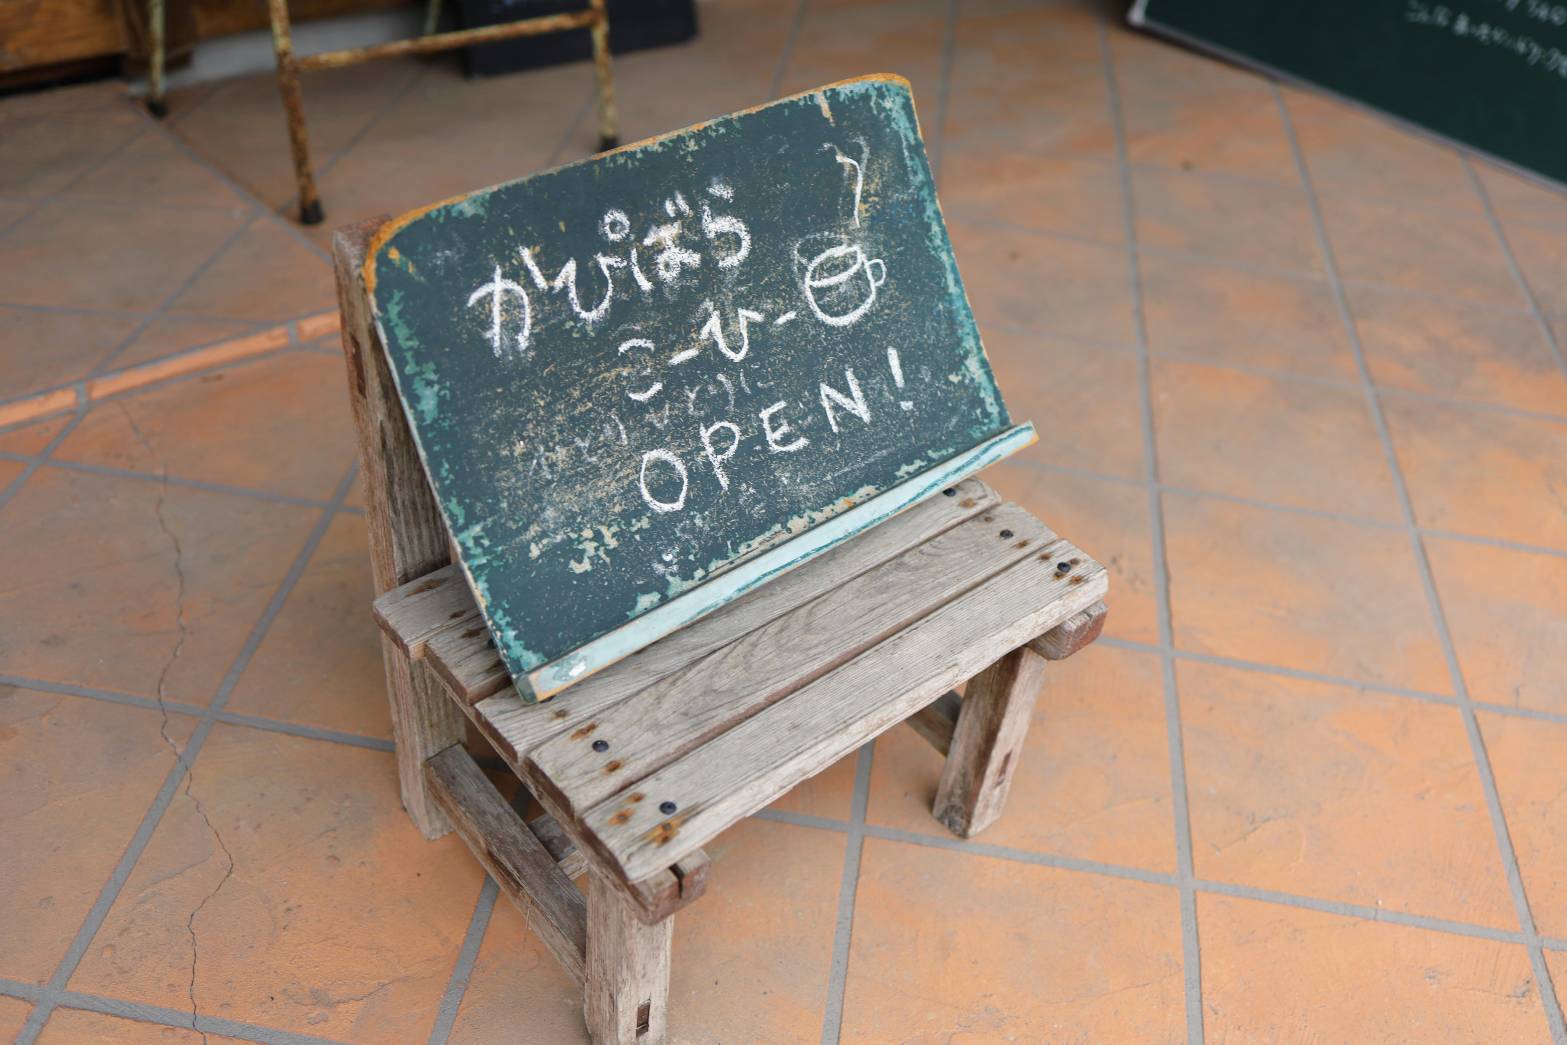 かぴばら
こーひー
OPEN!